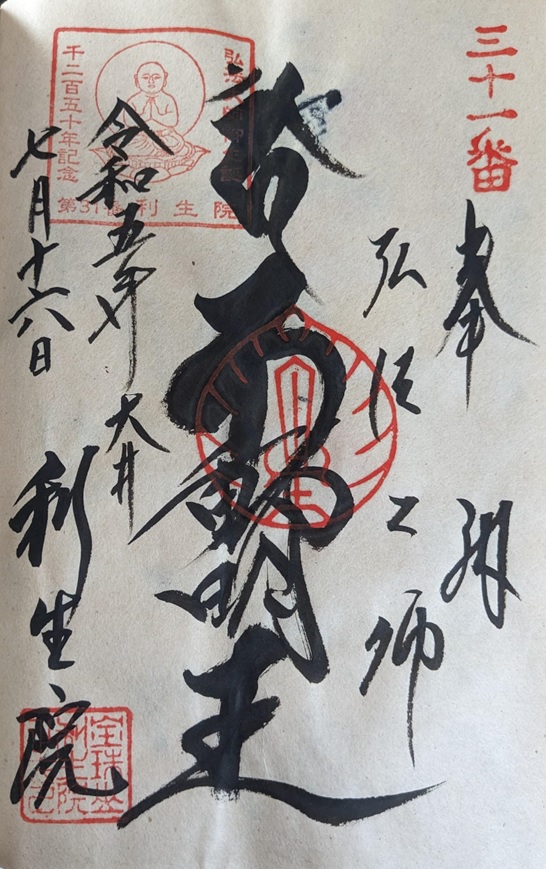 三十一番
奉拝
弘法大師
不動明王
弘法大師御生誕
千二百五十年記念
第31番利生院
令和五年
七月十六日
大井
利生院